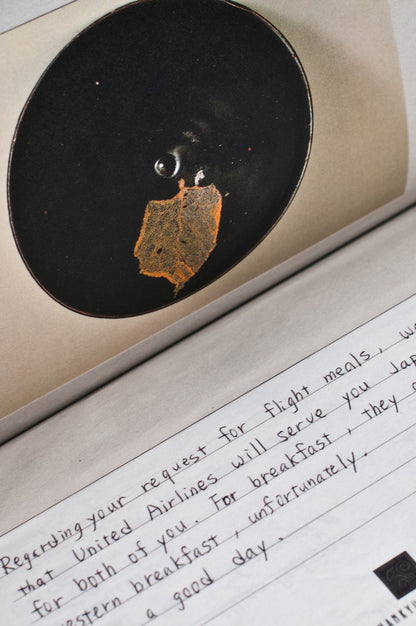 Regarding your request for flight meals, w
that United Airlines will serve you Jap
for both of you. For breakfast, they
western breakfast, unfortunately.
a good day.